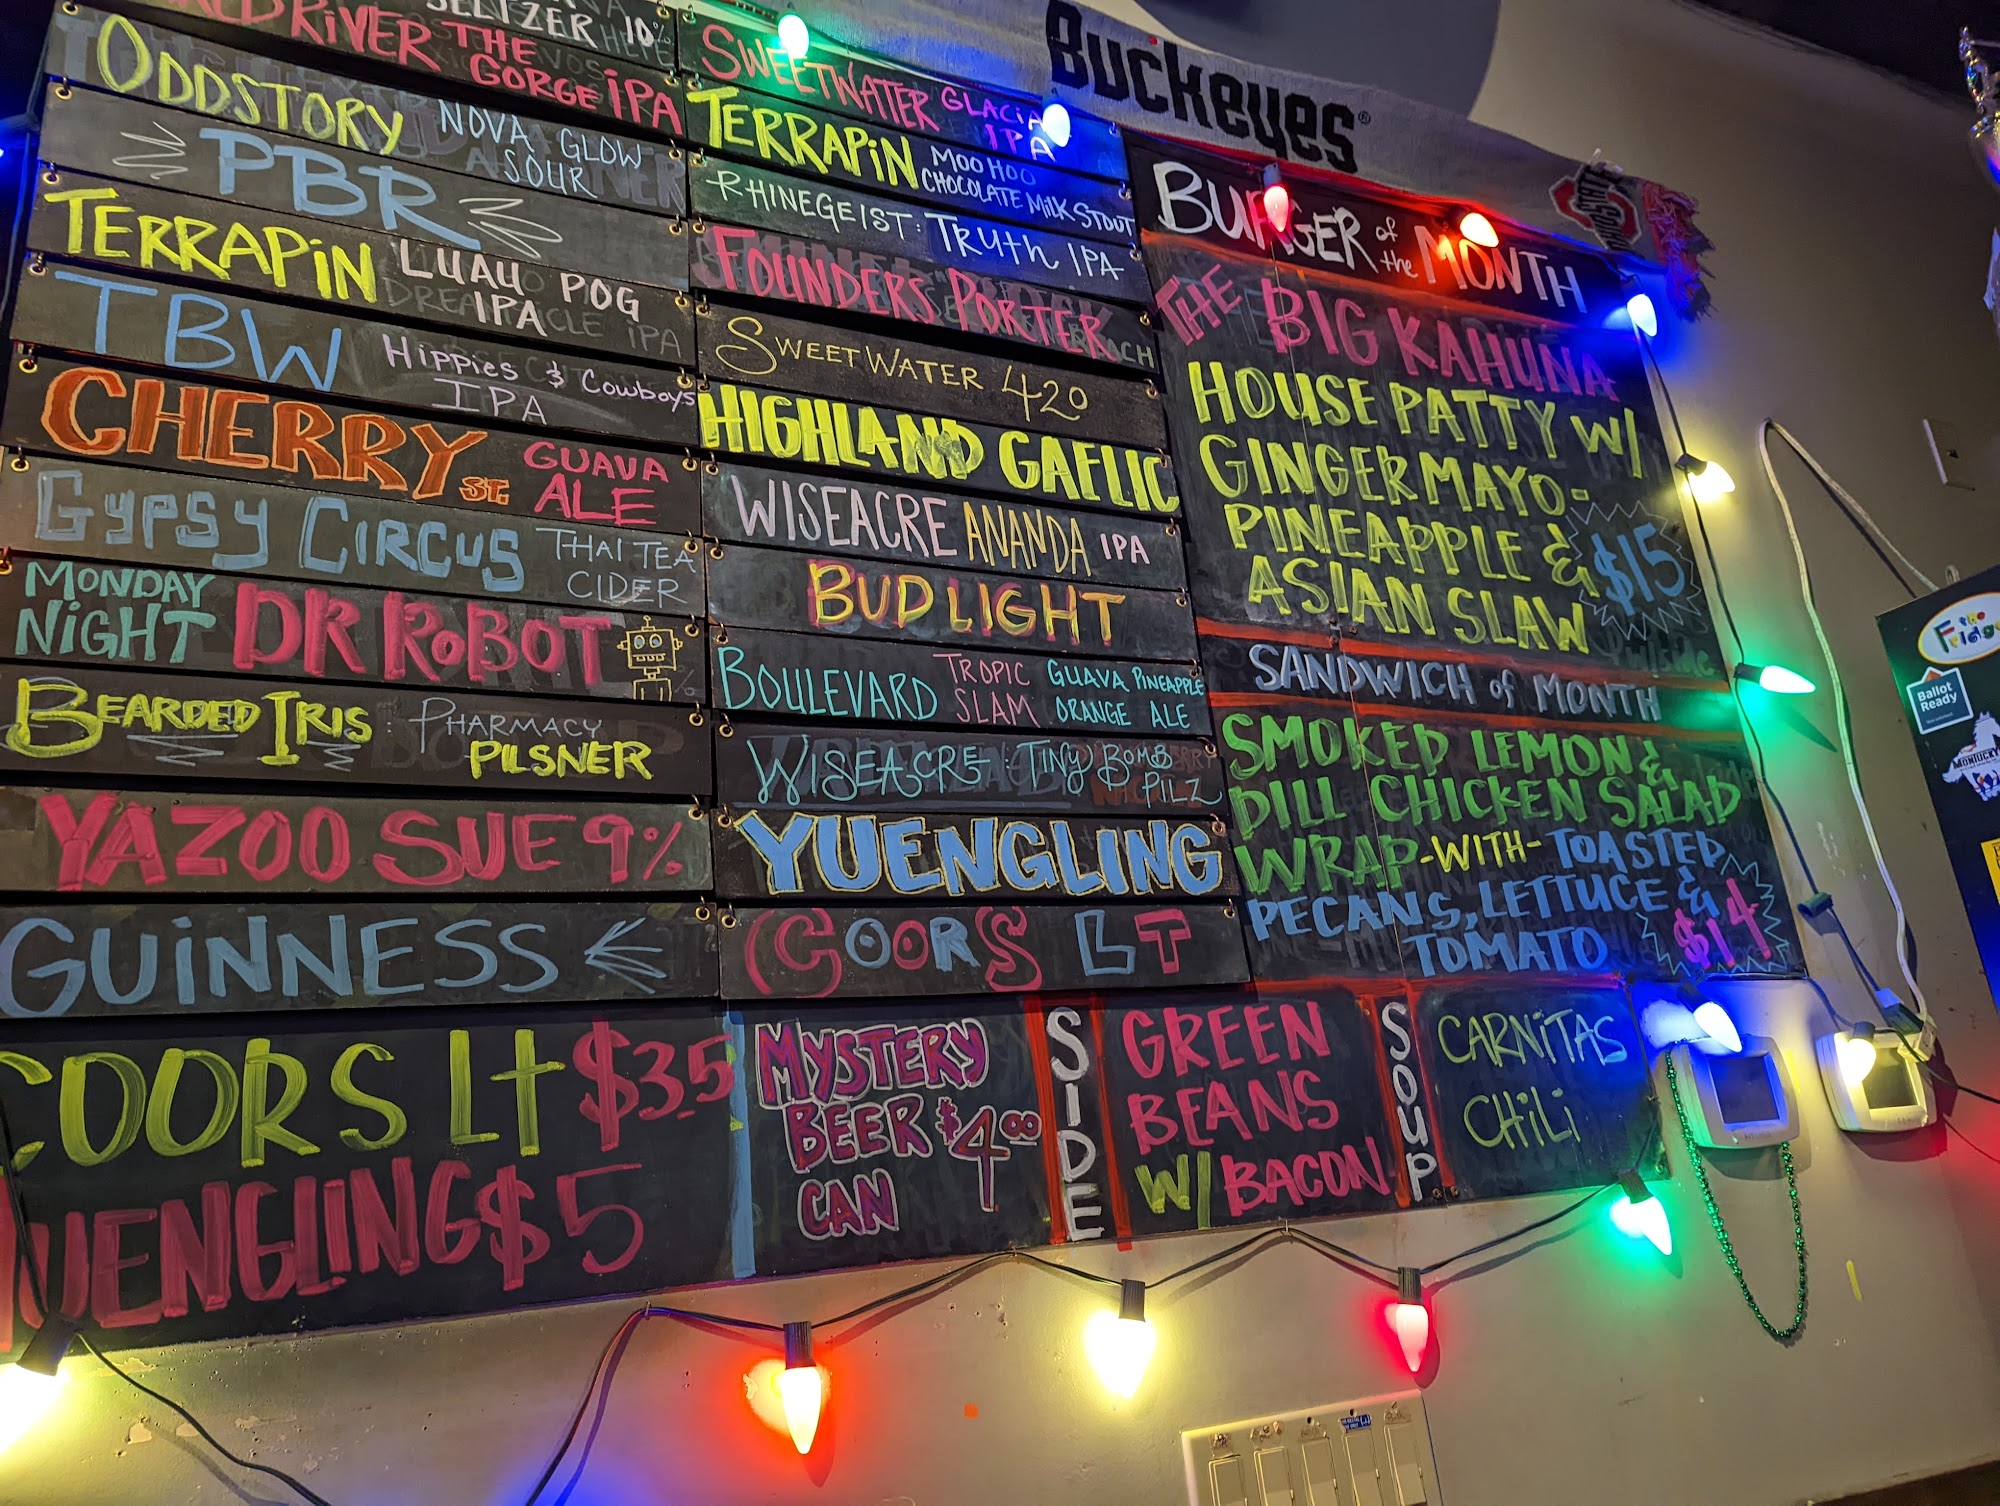 SELTZER 10%
RIVER THE GORGE IPA
ODDSTORY NOVA GLOW SOUR
PBR
TERRAPIN LUAU POG IPA
TBW Hippies & Cowboys IPA
CHERRY ST. GUAVA ALE
GYPSY CIRCUS THAI TEA CIDER
MONDAY NIGHT DR ROBOT
BEARDED IRIS: PHARMACY PILSNER
YAZOO SUE 9%
GUINNESS
SWEETWATER GLACIA IPA
TERRAPIN MOO HOO CHOCOLATE MILK STOUT
RHINEGEIST: TRUTH IPA
FOUNDERS PORTER
SWEETWATER 420
HIGHLAND GAELIC
WISEACRE ANANDA IPA
BUD LIGHT
BOULEVARD TROPIC SLAM GUAVA PINEAPPLE ORANGE ALE
WISEACRE: TINY BOMB PILZ
YUENGLING
COORS LT
COORS LT $3.5
YUENGLING $5
MYSTERY
BEER $4.00
CAN
SIDE
GREEN
BEANS
W/ BACON
SOUP
CARNITAS
CHILI
BUCKEYES®
OHIO STATE
BURGER of the MONTH
THE BIG KAHUNA
HOUSE PATTY W/
GINGER MAYO-
PINEAPPLE &
ASIAN SLAW
$15
SANDWICH of MONTH
SMOKED LEMON &
DILL CHICKEN SALAD
WRAP -WITH- TOASTED
PECANS, LETTUCE &
TOMATO
$14
the
Fridge
Ballot
Ready
MONTUCKY